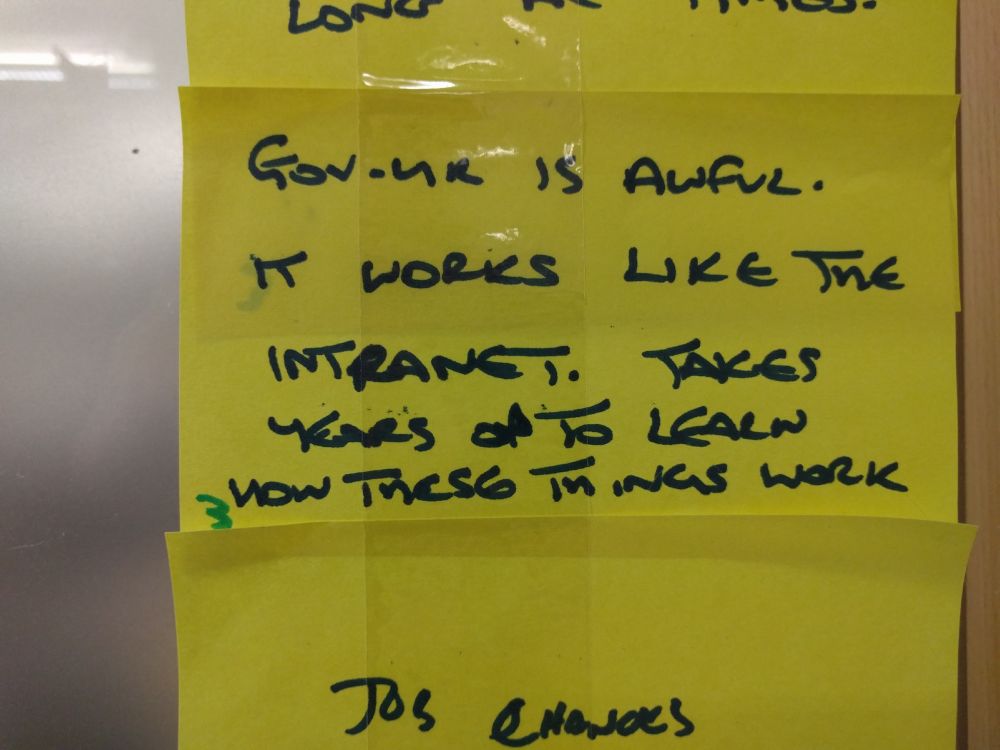 LONG AT TIMES.
GOV.UK IS AWFUL.
IT WORKS LIKE THE
INTRANET. TAKES
YEARS OF TO LEARN
HOW THESE THINGS WORK
JOB CHANGES